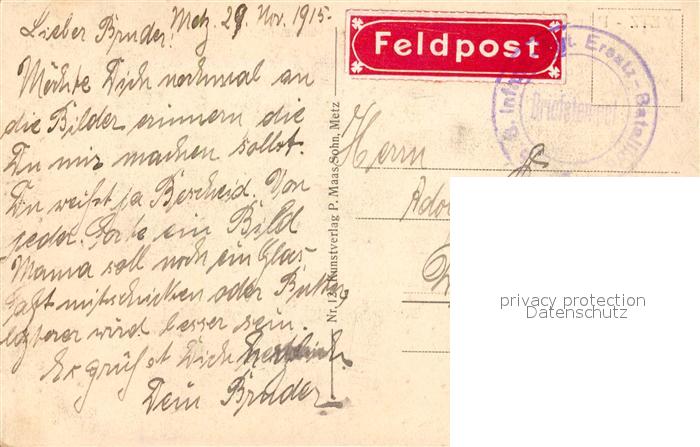 Metz, 29. Nov. 1915.
Lieber Bruder!
Möchte Dich nochmal an
die Bilder erinnern die
Du mir machen sollst.
Du weißt ja Bescheid. Von
jeder Sorte ein Bild
Mama soll noch ein Glas
mitschicken oder
letzterer wird besser sein.
Es grüßt Dich herzlich
Dein Bruder
Feldpost
Ersatz-Bataillon
Briefstempel
Nr. 12 Kunstverlag P. Maas Sohn, Metz
Herrn
privacy protection
Datenschutz